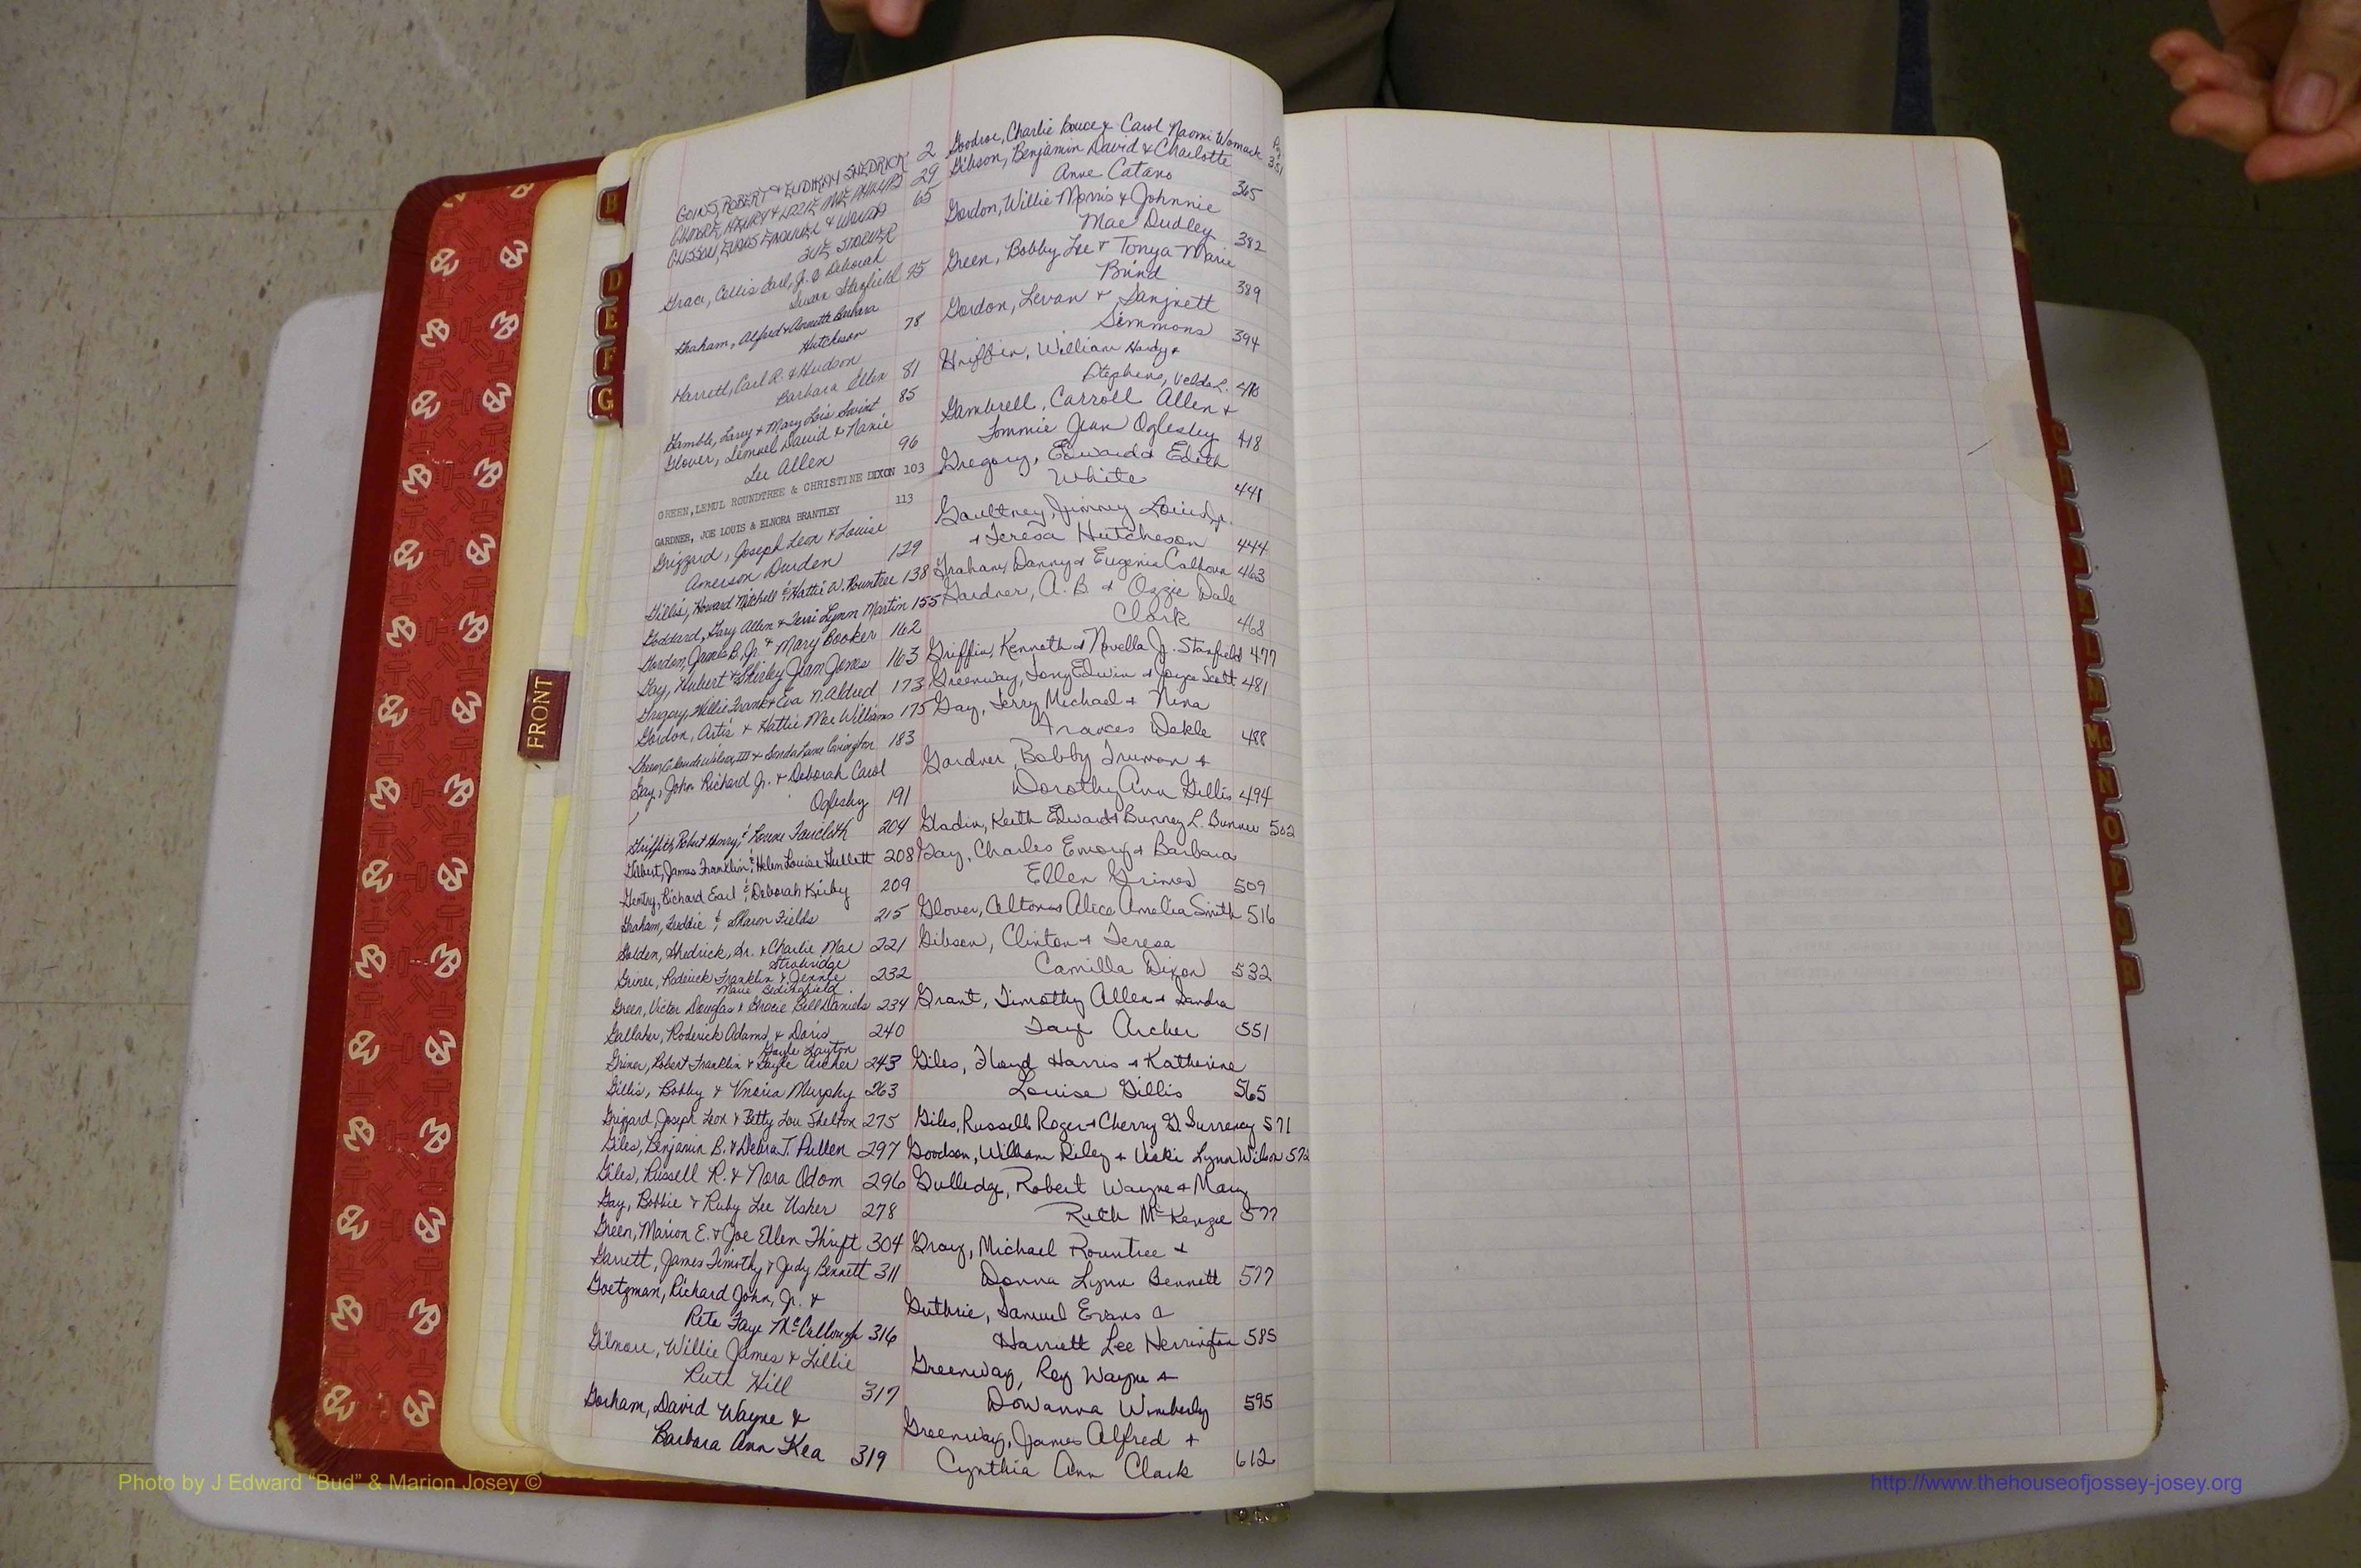 GOINS, ROBERT & EUDIKAY SHEDRICK 2
GILMORE, HENRY & LIZZIE MAE PHILLIPS 29
GLISSON, EVANS EMANUEL & WANDA 65
SUE STOEVER
Grace, Collis Earl, Jr. & Deborah
Susan Stanfield 75
Graham, Alfred & Annette Barbara
Hutcheson 78
Harrell, Carl R. & Hudson
Barbara Ellen 81
Gamble, Larry & Mary Lois Swint 85
Glover, Lemuel David & Nanie
Lee Allen 96
GREEN, LEMUL ROUNDTREE & CHRISTINE DIXON 103
GARDNER, JOE LOUIS & ELNORA BRANTLEY 113
Grizzard, Joseph Leon & Louise
Amerson Durden 129
Gillis, Howard Mitchell & Hattie W. Rountree 138
Goddard, Gary Allen & Terri Lynn Martin 155
Gordon, James B., Jr. & Mary Booker 162
Gay, Hubert & Shirley Jean Jones 163
Gregory, Willie Frank & Eva N. Aldred 173
Gordon, Artis & Hattie Mae Williams 175
Green, Claude Wilson, III & Sonda Lane Covington 183
Gay, John Richard Jr. & Deborah Carol
Oglesby 191
Griffith, Robert Henry & Louise Faircloth 204
Gilbert, James Franklin & Helen Louise Hullett 208
Gentry, Richard Earl & Deborah Kirby 209
Graham, Freddie & Sharon Fields 215
Golden, Shedrick, Sr. & Charlie Mae 221
Strobridge
Griner, Roderick Franklin & Jennie 232
Marie Bedingfield
Green, Victor Douglas & Gracie Bell Daniels 234
Gallaher, Roderick Adams, & Doris 240
Gayle Layton
Griner, Robert Franklin & Gayle Archer 243
Gillis, Bobby & Murphy 263
Grizzard, Joseph Leon & Betty Lou Shelton 275
Giles, Benjamin B. & Debra T. Pullen 297
Giles, Russell R. & Nora Odom 296
Gay, Bobbie & Ruby Lee Usher 278
Green, Marion E. & Joe Ellen Thrift 304
Garrett, James Timothy & Judy Bennett 311
Goetzman, Richard John, Jr. &
Rita Faye McCullough 316
Gilmore, Willie James & Lillie
Ruth Hill 317
Gorham, David Wayne &
Barbara Ann Kea 319
Pg
Goodroe, Charlie Bruce & Carol Naomi Womack 351
Gibson, Benjamin David & Charlotte
Anne Catano 365
Gordon, Willie Morris & Johnnie
Mae Dudley 382
Green, Bobby Lee & Tonya Marie
Brind 389
Gordon, Levan & Sanjnett
Simmons 394
Griffin, William Hardy &
Stephens, Velda L. 416
Gambrell, Carroll Allen &
Tommie Jean Oglesby 418
Gregory, Edward & Edith
White 441
Gaultney, Jimmy Louis Jr.
& Teresa Hutcheson 444
Graham, Danny & Eugenia Calhoun 463
Gardner, A. B. & Ozzie Dale
Clark 468
Griffin, Kenneth & Novella J. Stanfield 477
Greenway, Tony Edwin & Joyce Scott 481
Gay, Terry Michael & Nina
Frances Dekle 488
Gardner, Bobby Truman &
Dorothy Ann Gillis 494
Gladin, Keith Edward & Bunney L. 502
Gay, Charles Emory & Barbara
Ellen Grimes 509
Glover, Alton & Alice Amelia Smith 516
Gibson, Clinton & Teresa
Camilla Dixon 532
Grant, Timothy Allen & Sandra
Faye Archer 551
Giles, Floyd Harris & Katherine
Louise Gillis 565
Giles, Russell Roger & Cherry G. Surrency 571
Goodson, William Riley & Vicki Lynn Wilson 572
Gulledge, Robert Wayne & Mary
Ruth McKenzie 577
Gray, Michael Rountree &
Donna Lynn Bennett 577
Guthrie, Samuel Evans &
Harriett Lee Herrington 585
Greenway, Roy Wayne &
DoWanna Wimberly 595
Greenway, James Alfred &
Cynthia Ann Clark 612
B
D
E
F
G
FRONT
Mc
N
O
P
Photo by J Edward "Bud" & Marion Josey ©
http://www.thehouseofjossey-josey.org